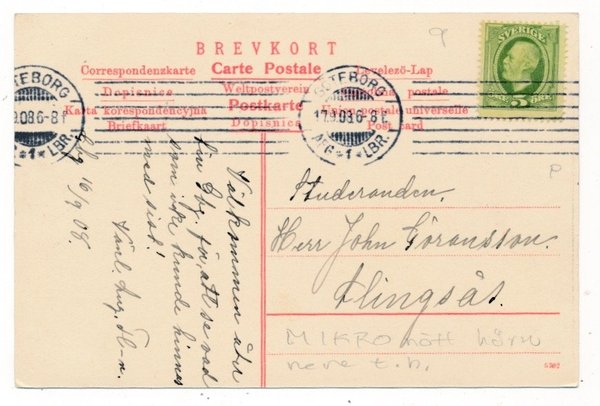 9
BREVKORT
Correspondenzkarte Carte Postale Levelező-Lap
Dopisnice Weltpostverein postale
Karta korespondencyjna Postkarte postale universelle
Briefkaart Dopisnica Post card
SVERIGE
5
KEBORG
.9.08 6-8 F
*1* LBR.
GÖTEBORG
17.9.08 6-8 F
AFG *1* LBR.
Välkommen åter
för att se vad
som icke kunde hinnas
med sist!
Gbg 16/9 08.
Vänl. Aug.
Studeranden.
Herr John Göransson.
Alingsås.
P
MIKRO nött hörn
nere t.h.
6302